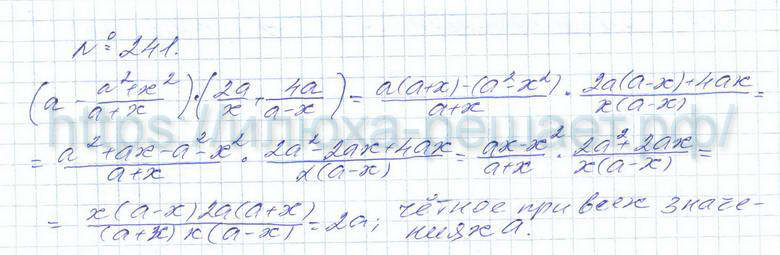 № 241.
(a - (a²+x²)/(a+x)) · (2a/x + 4a/(a-x)) = (a(a+x)-(a²-x²))/(a+x) · (2a(a-x)+4ax)/(x(a-x)) =
= (a²+ax-a²-x²)/(a+x) · (2a²-2ax+4ax)/(x(a-x)) = (ax-x²)/(a+x) · (2a²+2ax)/(x(a-x)) =
= (x(a-x)2a(a+x))/((a+x)x(a-x)) = 2a; чётное при всех значе-
ниях a.
https://илюха-решает.рф/